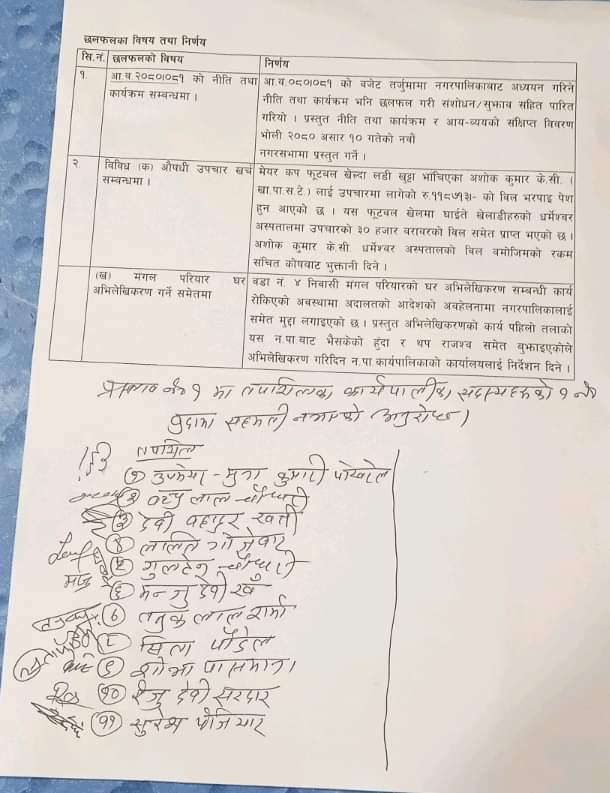 छलफलका विषय तथा निर्णय
सि.नं. छलफलको विषय निर्णय
१. आ.व.२०८०।०८१ को नीति तथा कार्यक्रम सम्बन्धमा ।
आ.व.०८०।०८१ को बजेट तर्जुमामा नगरपालिकाबाट अध्ययन गरिने
नीति तथा कार्यक्रम भनि छलफल गरी संशोधन/सुझाव सहित पारित
गरियो । प्रस्तुत नीति तथा कार्यक्रम र आय-व्ययको संक्षिप्त विवरण
भोली २०८० असार १० गतेको नवौं
नगरसभामा प्रस्तुत गर्ने ।
२. विविध (क) औषधी उपचार खर्च
सम्बन्धमा ।
मेयर कप फूटबल खेल्दा लडी खुट्टा भाँचिएका अशोक कुमार के.सी. (
खा.पा.स.टे.) लाई उपचारमा लागेको रु.११८७१३।- को बिल भरपाइ पेश
हुन आएको छ । यस फूटबल खेलमा घाईते खेलाडीहरुको धर्मेश्वर
अस्पतालमा उपचारको ३० हजार बराबरको बिल समेत प्राप्त भएको छ ।
अशोक कुमार के.सी. धर्मेश्वर अस्पतालको बिल बमोजिमको रकम
संचित कोषबाट भुक्तानी दिने ।
(ख) मंगल परियार घर
अभिलेखिकरण गर्ने समेतमा
वडा नं. ४ निवासी मंगल परियारको घर अभिलेखिकरण सम्बन्धी कार्य
रोकिएको अवस्थामा अदालतको आदेशको अवहेलनामा नगरपालिकालाई
समेत मुद्दा लगाइएको छ । प्रस्तुत अभिलेखिकरणको कार्य पहिलो तलाको
यस न.पा.बाट भैसकेको हुंदा र थप राजश्व समेत बुझाइएकोले
अभिलेखिकरण गरिदिन न.पा कार्यपालिकाको कार्यालयलाई निर्देशन दिने ।
प्रस्ताव नं १ मा तपसिलका कार्यपालिका सदस्यहरुको १ नं
बुदामा सहमती नभएको अनुरोध छ।
तपसिल
(१) उपमेयर - मुना कुमारी पोखरेल
(२) लाल चौधरी
(३) देवी बहादुर खत्री
(४) ललित
(५) चौधरी
मञ्जु
(६) मन्जु देवी खँ
(७) लाल शर्मा
(८) सिला पौडेल
(९) शोभा पासमान
(१०) रेजु देवी सरदार
(११) सुरेश पँजियार